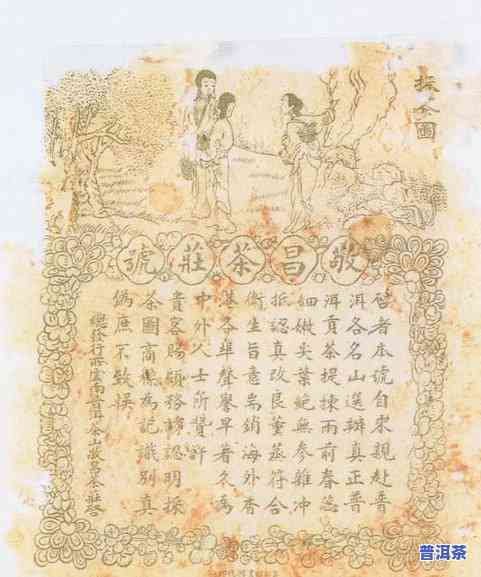 採茶圖
敬昌茶莊號
啓者本號自來親赴普
洱各名山選辦真正普
洱貢茶提揀雨前春蕊
細嫩尖葉絶無參雜冲
抵認真改良薰蒸符合
衛生旨意出銷海外香
港各埠聲譽早著久為
中外人士所贊許
貴客賜顧務請認明採
茶圖商標為記識別真
偽庶不致悞
總發行所雲南普洱茶山敬昌茶莊啓
普洱茶